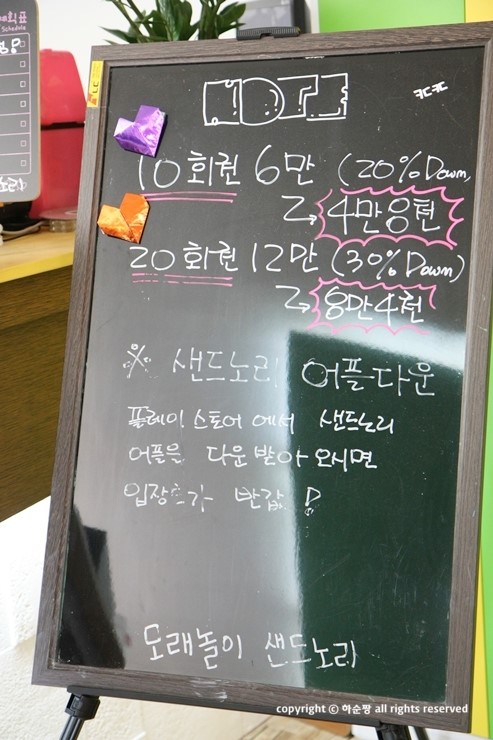 계획표
Schedule
ㅋㄷㅋㄷ
10회권 6만 (20%Down)
4만8천
20회권 12만 (30%Down)
8만4천
※ 샌드노리 어플다운
플레이스토어에서 샌드노리
어플을 다운받아오시면
입장료가 반값!
모래놀이 샌드노리
copyright © 하순짱 all rights reserved